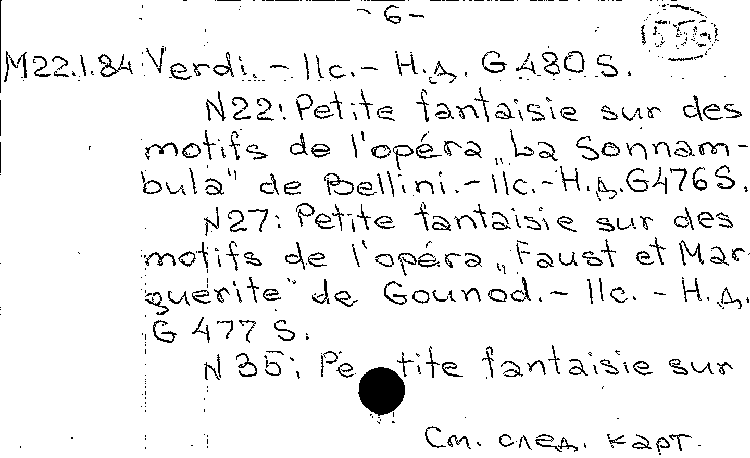 -6-
556
M22.1.84 Verdi. - 11с. - Н.д. G 480 S.
N22: Petite fantaisie sur des
motifs de l'opéra „La Sonnam-
bula" de Bellini. - 11с. - Н.д. G476 S.
N27: Petite fantaisie sur des
motifs de l'opéra „Faust et Mar-
guerite" de Gounod. - 11с. - Н.д.
G 477 S.
N 35: Petite fantaisie sur
См. след. карт.